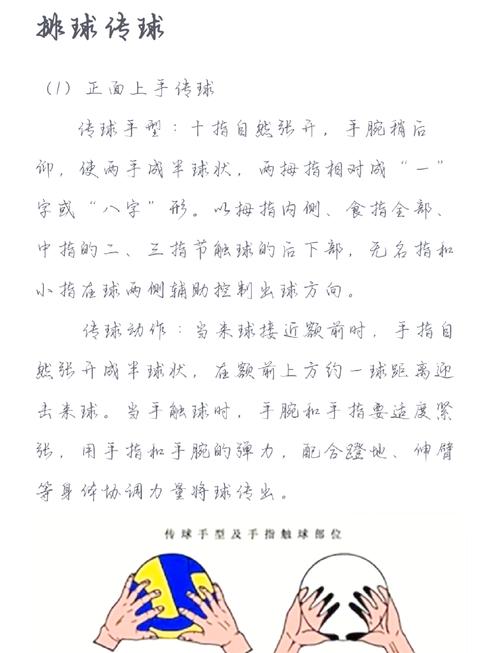 排球传球
(1) 正面上手传球
传球手型：十指自然张开，手腕稍后
仰，使两手成半球状，两拇指相对成“一”
字或“八字”形。以拇指内侧、食指全部、
中指的二、三指节触球的后下部，无名指和
小指在球两侧辅助控制出球方向。
传球动作：当来球接近额前时，手指自
然张开成半球状，在额前上方约一球距离迎
击来球。当手触球时，手腕和手指要适度紧
张，用手指和手腕的弹力，配合蹬地、伸臂
等身体协调力量将球传出。
传球手型及手指触球部位